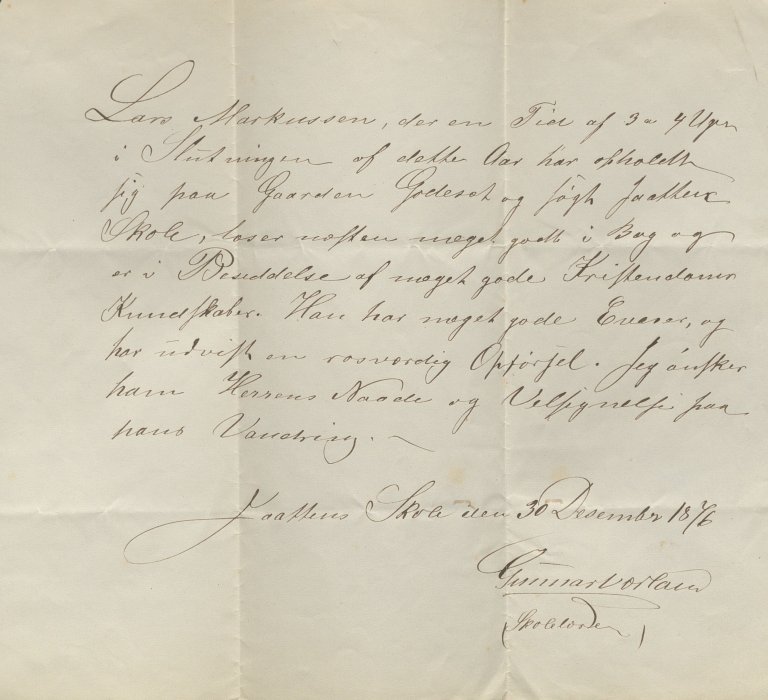 Lars Markussen, der en Tid af 3 a 4 Uger
i Slutningen af dette Aar har opholdt
sig paa Gaarden Godeset og søgt Jaattens
Skole, læser næsten meget godt i Bog og
er i Besiddelse af meget gode Kristendoms
Kundskaber. Han har meget gode Evner, og
har udvist en rosværdig Opførsel. Jeg ønsker
ham Herrens Naade og Velsignelse paa
hans Vandring.
Jaattens Skole den 30 Desember 1876
Gunnar
(Skolelærer)